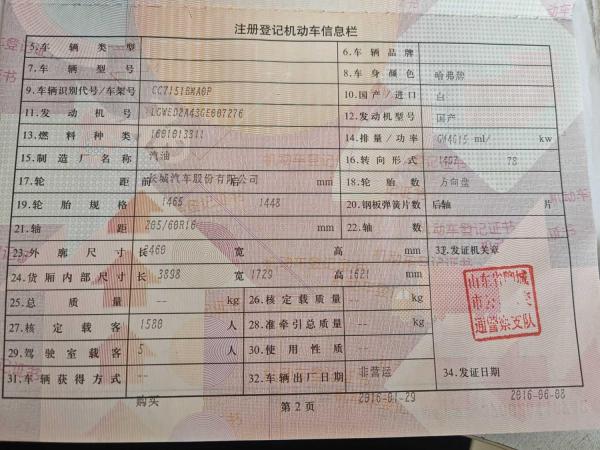 注册登记机动车信息栏
5.车辆类型 6.车辆品牌
7.车辆型号 8.车身颜色 哈弗牌
9.车辆识别代号/车架号 CC7151BMA0P 10.国产/进口 白
11.发动机号 LGWED2A43GE607276 12.发动机型号 国产
13.燃料种类 1601013311 14.排量/功率 GW4G15 ml/ kw
15.制造厂名称 汽油 16.转向形式 1497 78
17.轮距 前 长城汽车股份有限公司 后 mm 18.轮胎数 方向盘
19.轮胎规格 1465 1448 20.钢板弹簧片数 后轴 片
21.轴距 205/60R16 mm 22.轴数
23.外廓尺寸 长 2460 宽 高 mm 33.发证机关章
24.货厢内部尺寸 长 3898 宽 1729 高 1621 mm
25.总质量 -- kg 26.核定载质量 -- -- kg
27.核定载客 1580 人 28.准牵引总质量 -- kg
29.驾驶室载客 5 人 30.使用性质 --
31.车辆获得方式 -- 32.车辆出厂日期 非营运 34.发证日期
购买 2016-01-29 2016-06-08
第2页